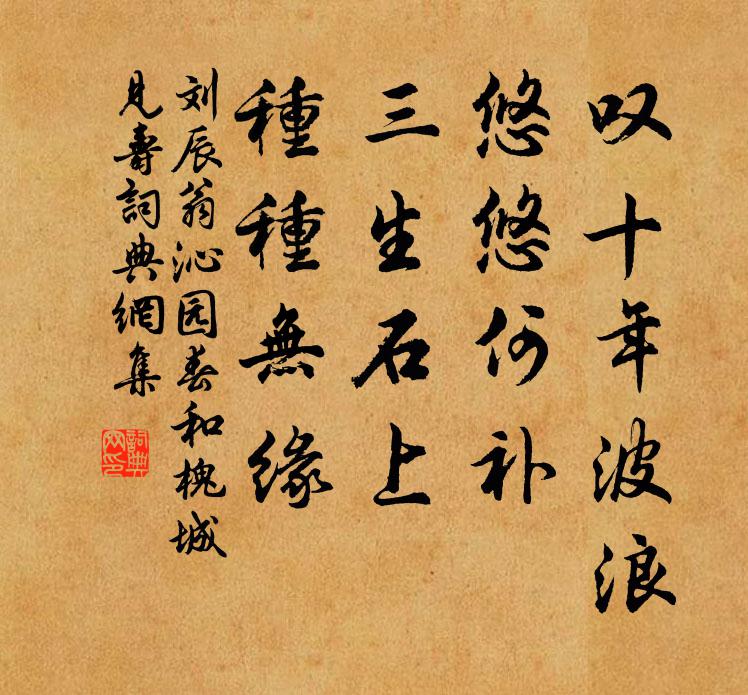 叹十年波浪
悠悠何补
三生石上
種種無緣
刘辰翁沁园春和槐城
見壽詞典網集
詞典
网印